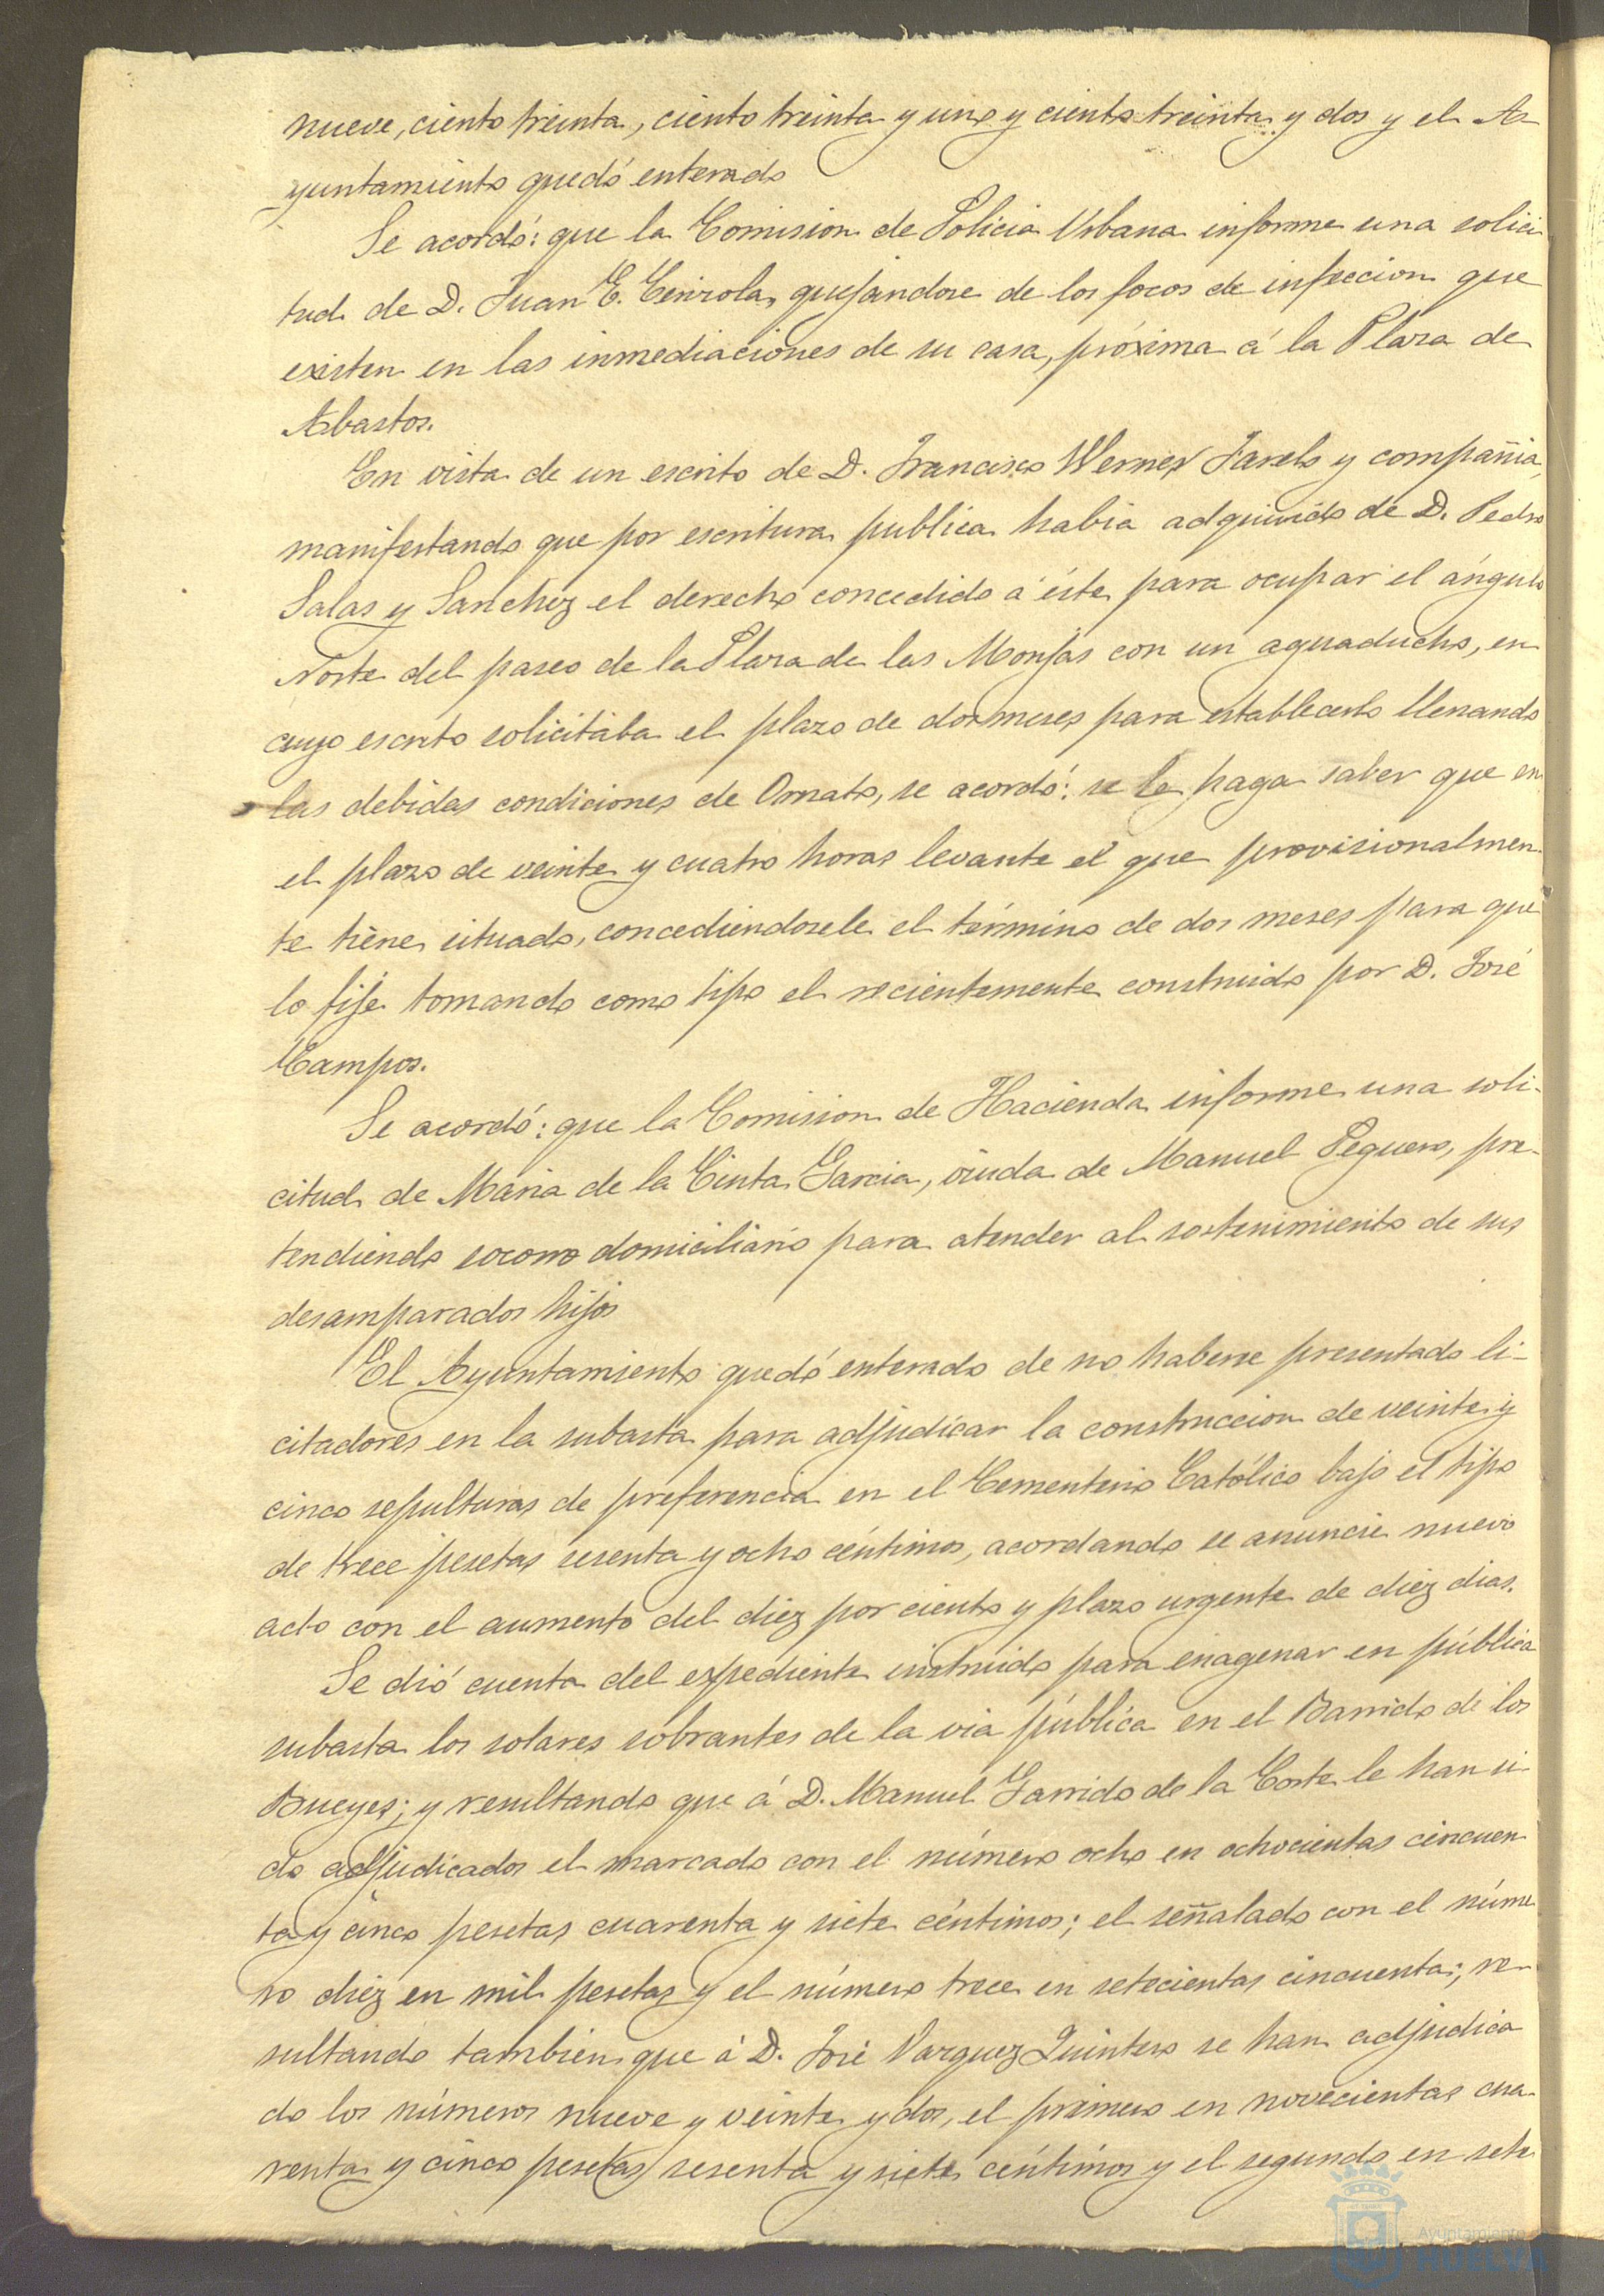 nueve, ciento treinta, ciento treinta y uno y ciento treinta y dos y el A-
yuntamiento quedó enterado
Se acordó: que la Comision de Policia Urbana informe una solici
tud de D. Juan E. quejandose de los focos de infeccion que
existen en las inmediaciones de su casa, próxima á la Plaza de
Abastos.
En vista de un escrito de D. Francisco Werner y compañia,
manifestando que por escritura publica habia adquirido de D. Pedro
Salas y Sanchez el derecho concedido á éste para ocupar el ángulo
Norte del paseo de la Plaza de las Monjas con un aguaducho, en
cuyo escrito solicitaba el plazo de dos meses para establecerlo llenando
las debidas condiciones de Ornato, se acordó: se le haga saber que en
el plazo de veinte y cuatro horas levante el que provisionalmen
te tiene situado, concediendosele el término de dos meses para que
lo fije tomando como tipo el recientemente construido por D. José
Campos.
Se acordó: que la Comision de Hacienda informe una soli-
citud de Maria de la Cinta Garcia, viuda de Manuel Peguero, pre-
tendiendo socorro domiciliario para atender al sostenimiento de sus
desamparados hijos
El Ayuntamiento quedó enterado de no haberse presentado li-
citadores en la subasta para adjudicar la construccion de veinte y
cinco sepulturas de preferencia en el Cementerio Católico bajo el tipo
de trece pesetas sesenta y ocho céntimos, acordando se anuncie nuevo
acto con el aumento del diez por ciento y plazo urgente de diez dias.
Se dió cuenta del expediente instruido para enagenar en pública
subasta los solares sobrantes de la via pública en el Barrido de los
Bueyes; y resultando que á D. Manuel Garrido de la Corte le han si-
do adjudicados el marcado con el número ocho en ochocientas cincuen
ta y cinco pesetas cuarenta y siete céntimos; el señalado con el núme
ro diez en mil pesetas y el número trece en setecientas cincuenta; re-
sultando tambien que á D. José Vazquez Quintero se han adjudica
do los números nueve y veinte y dos, el primero en novecientas cua-
renta y cinco pesetas sesenta y siete céntimos y el segundo en sete
Ayuntamiento
HUELVA